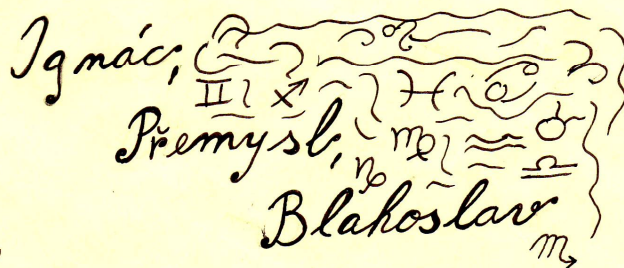 Ignác,
Přemysl,
Blahoslav